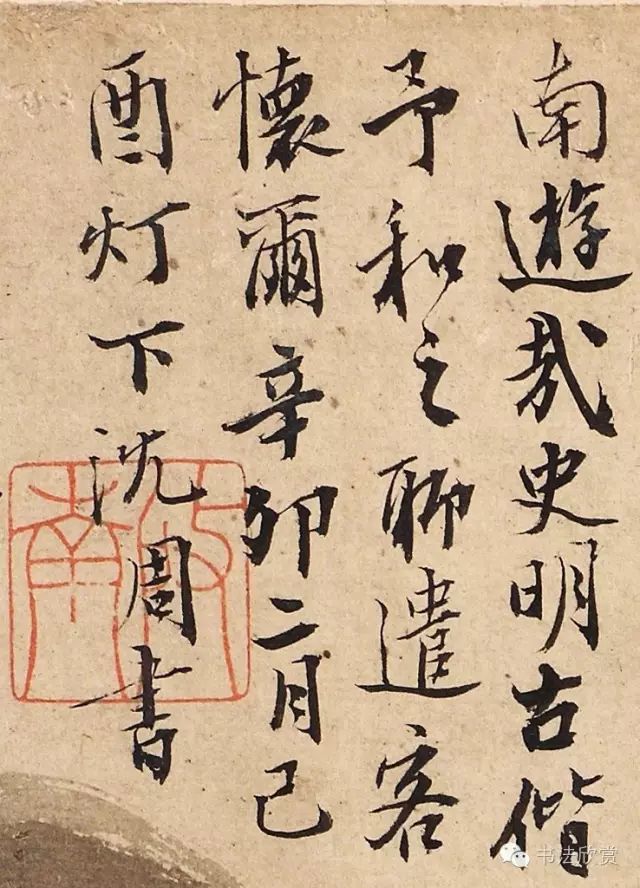 南遊哉史明古偕
予和之聊遣客
懷爾辛卯二月己
酉灯下沈周書
书法欣赏